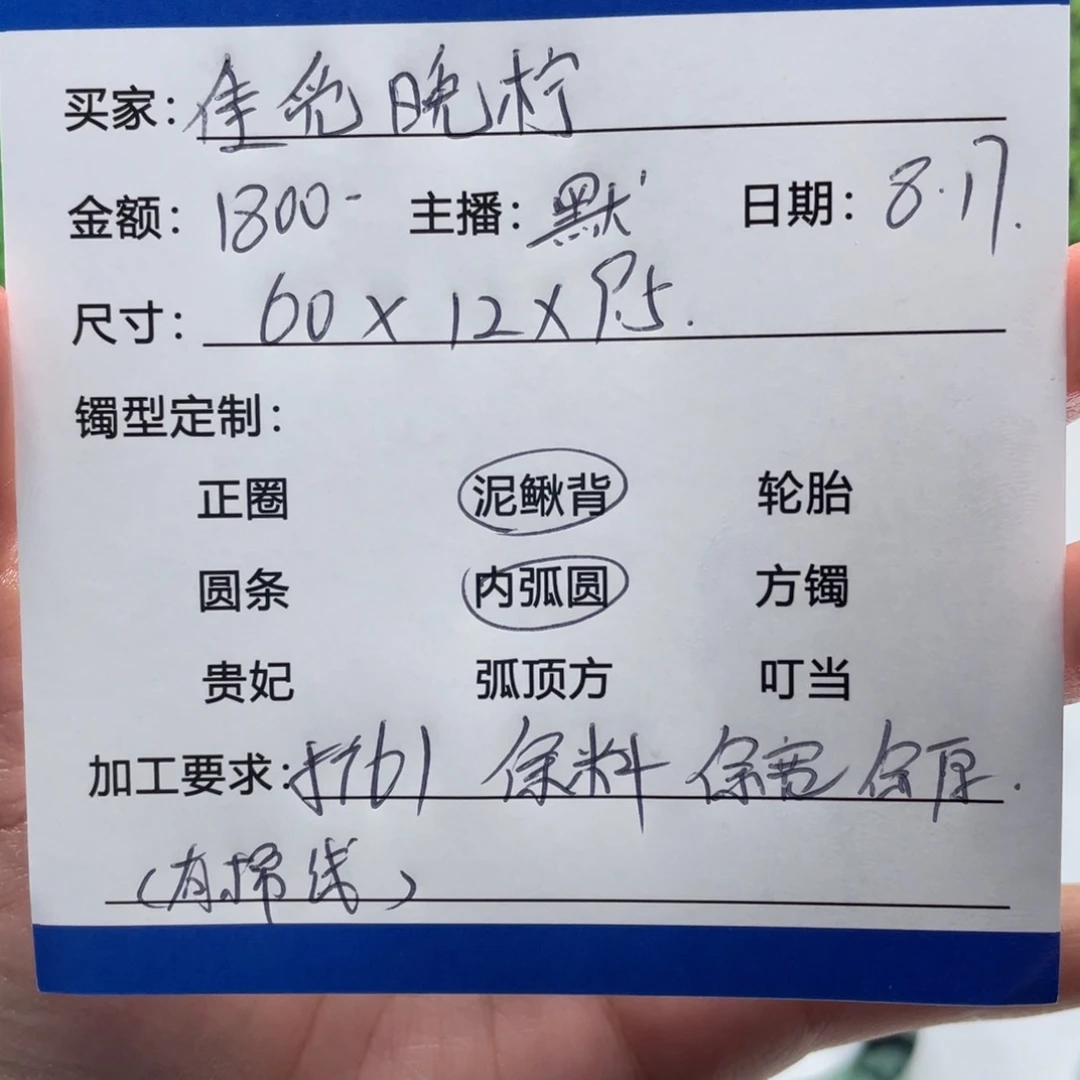 买家：佳觉晚柠
金额：1800- 主播：默 日期：8.17.
尺寸：60 X 12 X 9.5.
镯型定制：
正圈 泥鳅背 轮胎
圆条 内弧圆 方镯
贵妃 弧顶方 叮当
加工要求： 保料 保宽 保厚.
（有棉线）